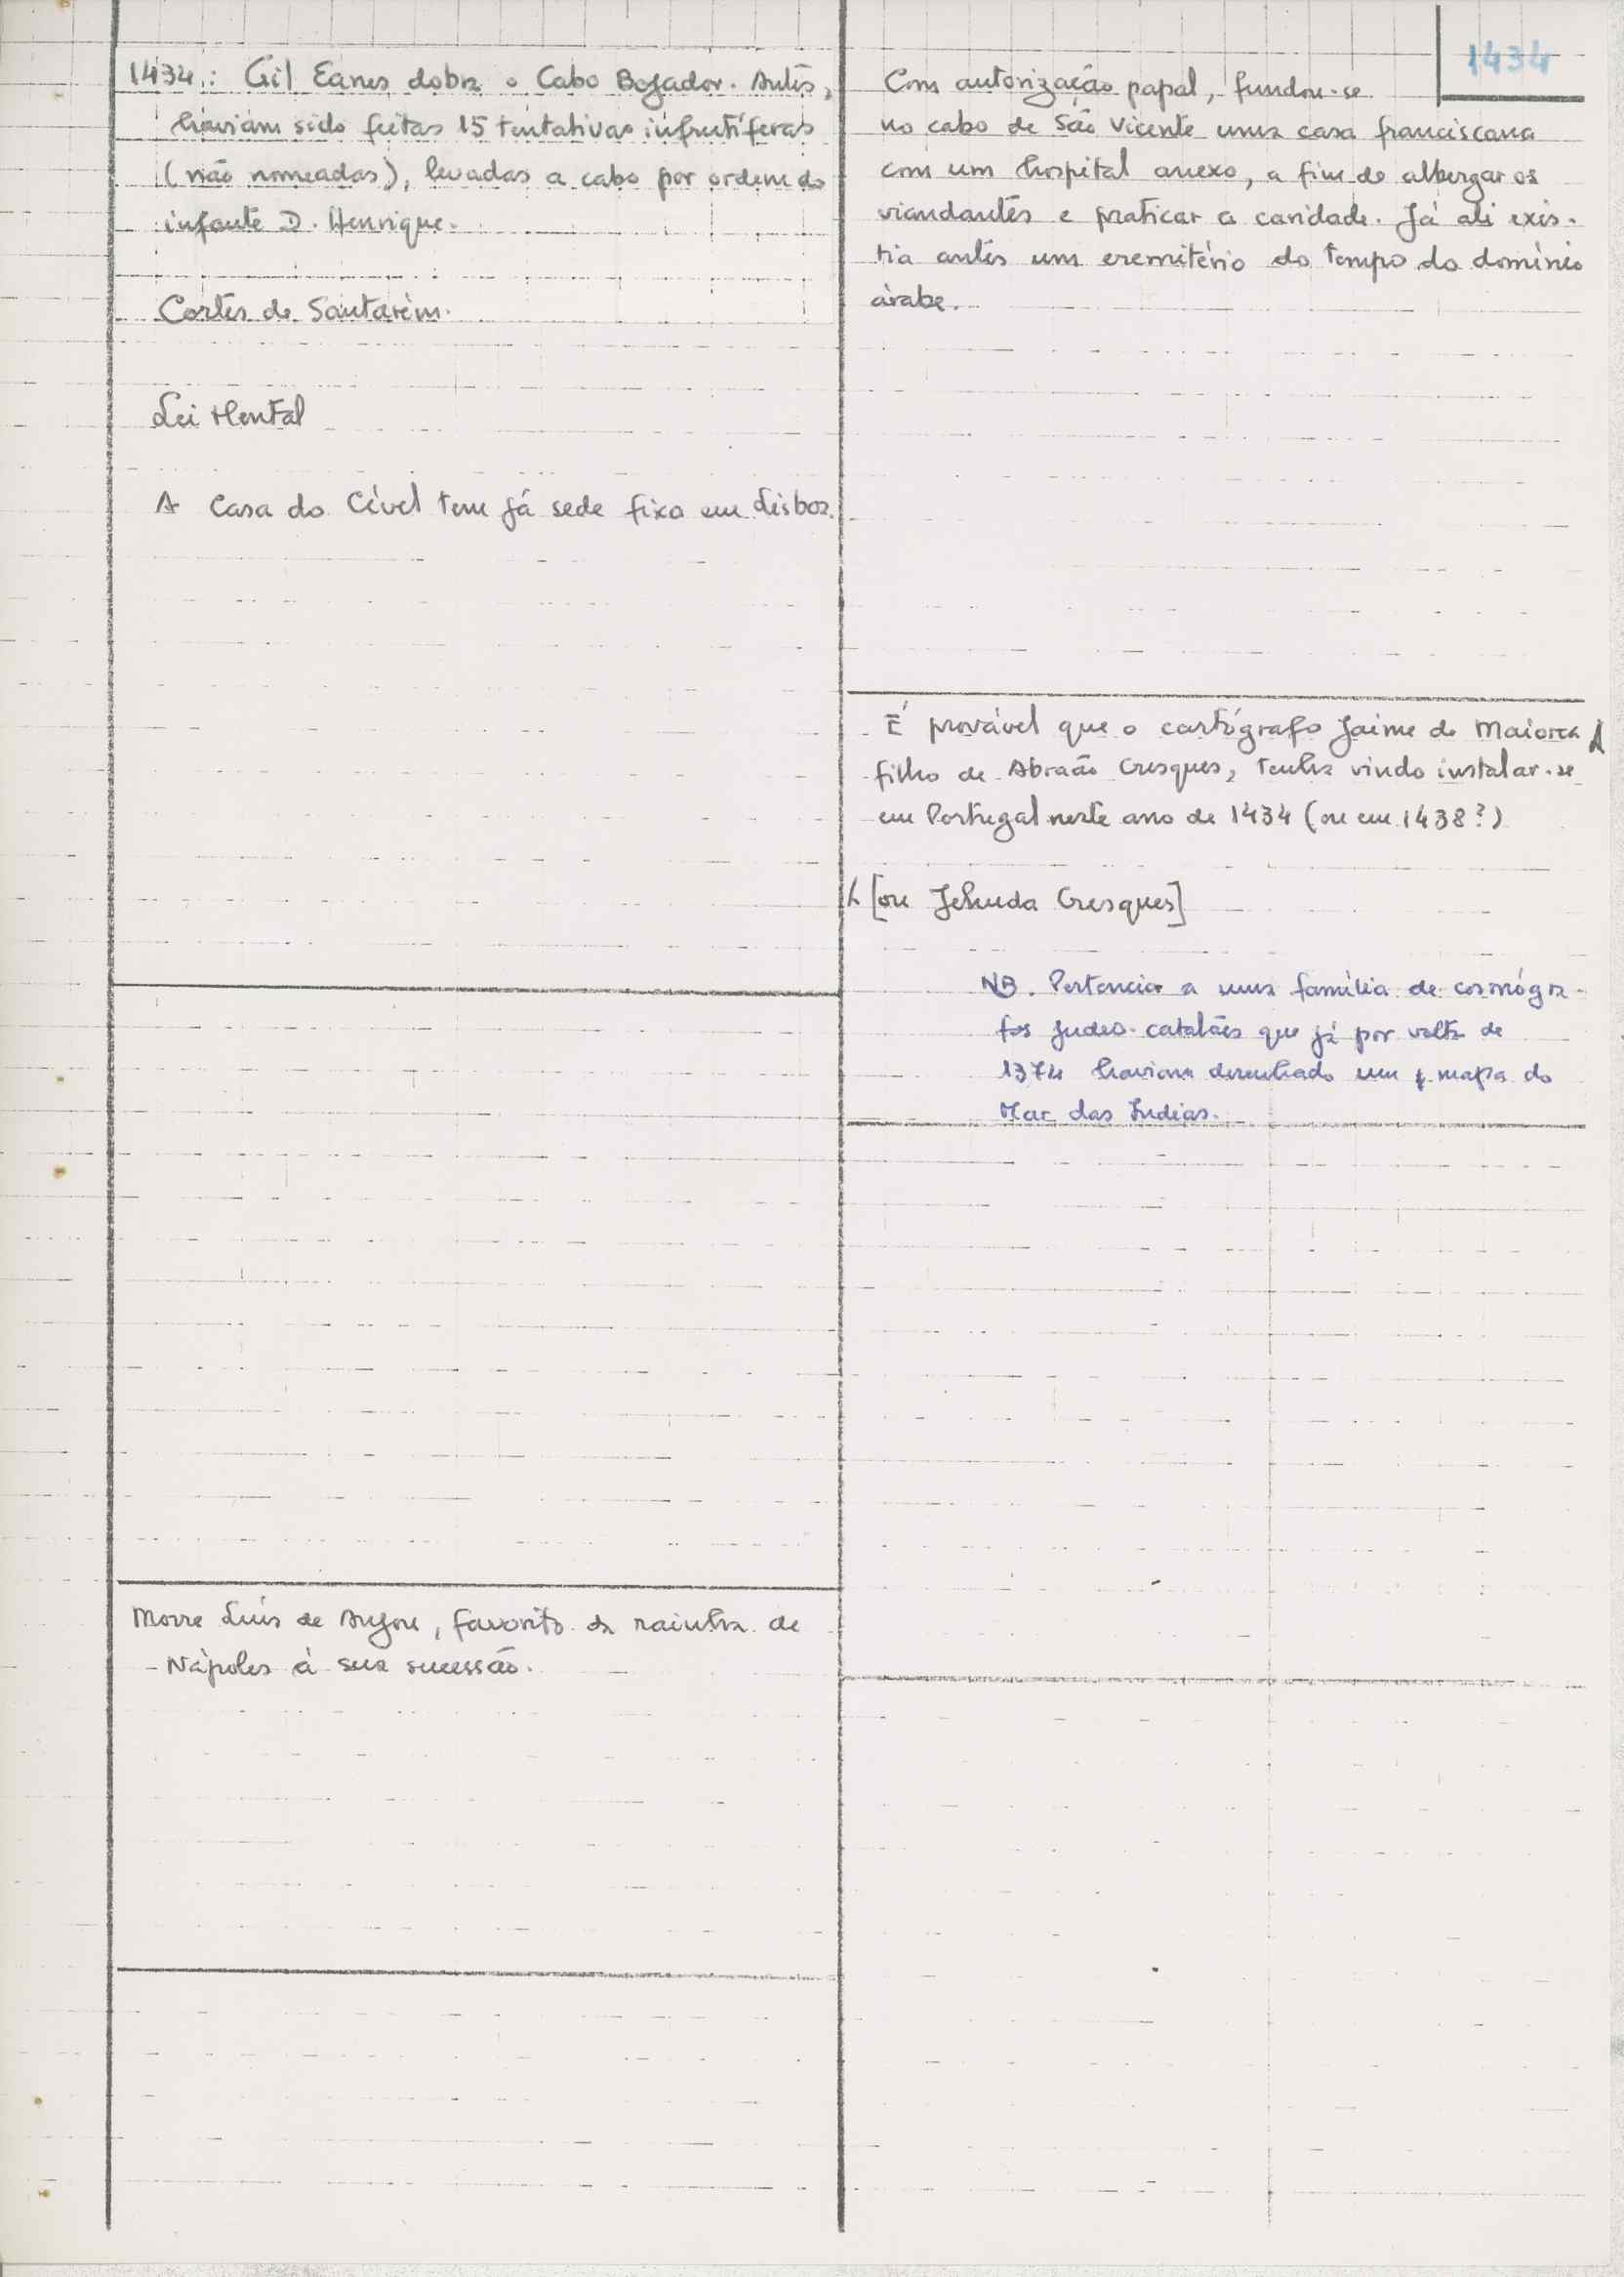 1434
1434: Gil Eanes dobra o Cabo Bojador. Antes,
haviam sido feitas 15 tentativas infrutíferas
(não nomeadas), levadas a cabo por ordem do
infante D. Henrique.
Cortes de Santarém.
Lei Mental
A Casa do Cível tem já sede fixa em Lisboa.
Morre Luís de Anjou, favorito da rainha de
Nápoles à sua sucessão.
Com autorização papal, fundou-se
no cabo de São Vicente uma casa franciscana
com um hospital anexo, a fim de albergar os
viandantes e praticar a caridade. Já ali exis-
tia antes um eremitério do tempo do domínio
árabe.
É provável que o cartógrafo Jaime de Maiorca
filho de Abraão Cresques, tenha vindo instalar-se
em Portugal neste ano de 1434 (ou em 1438?)
[ou Jehuda Cresques]
NB. Pertencia a uma família de cosmógra-
fos judeo-catalães que já por volta de
1374 haviam desenhado um mapa do
Mar das Índias.